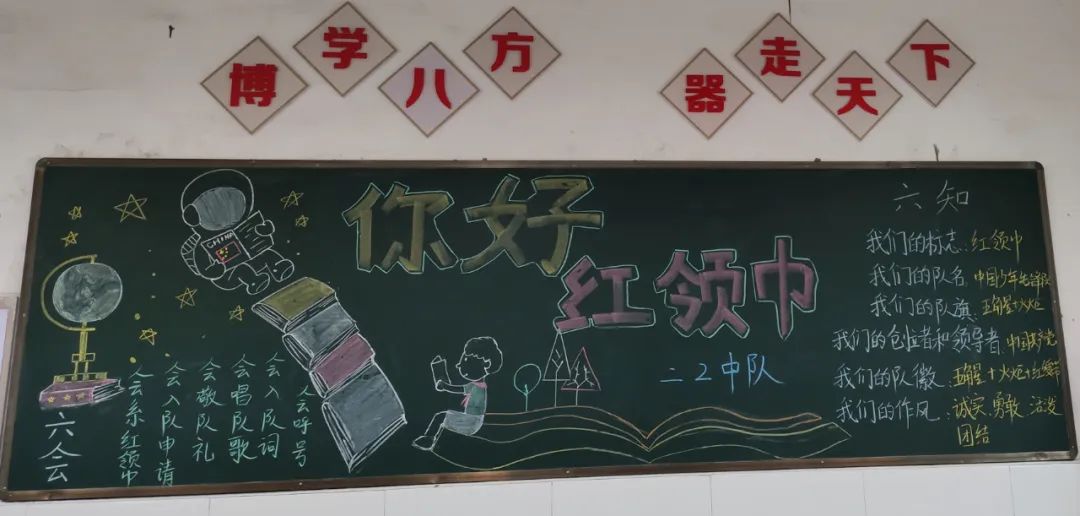 博学八方
器走天下
你好
红领巾
二2中队
CHINA
六会
会系红领巾
会入队申请
会敬队礼
会唱队歌
会入队词
会呼号
六知
我们的标志:红领巾
我们的队名:中国少年先锋队
我们的队旗:五角星+火炬
我们的创立者和领导者:中国共产党
我们的队徽:五角星+火炬+红绶带
我们的作风:诚实、勇敢、活泼
团结